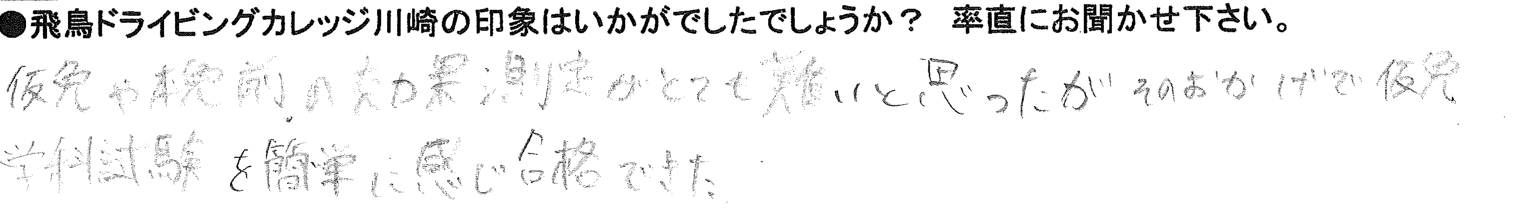 ●飛鳥ドライビングカレッジ川崎の印象はいかがでしたでしょうか？　率直にお聞かせ下さい。
仮免や本免前の効果測定がとても難いと思ったがそのおかげで仮免
学科試験を簡単に感じ合格できた